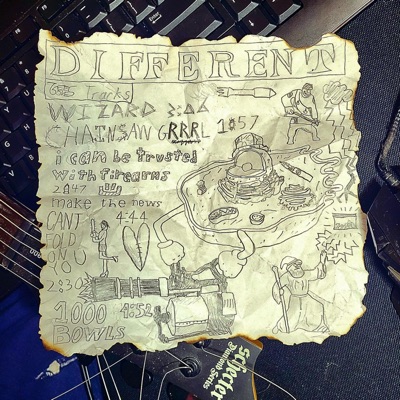 DIFFERENT
Tracks
WIZARD
CHAINSAW GRRRL 1:57
i can be trusted
with firearms
2:47
make the news
4:44
CANT
FOLD
ON U
YO
2:30
1000 4:52
BOWLS
Schecter
Diamond Series